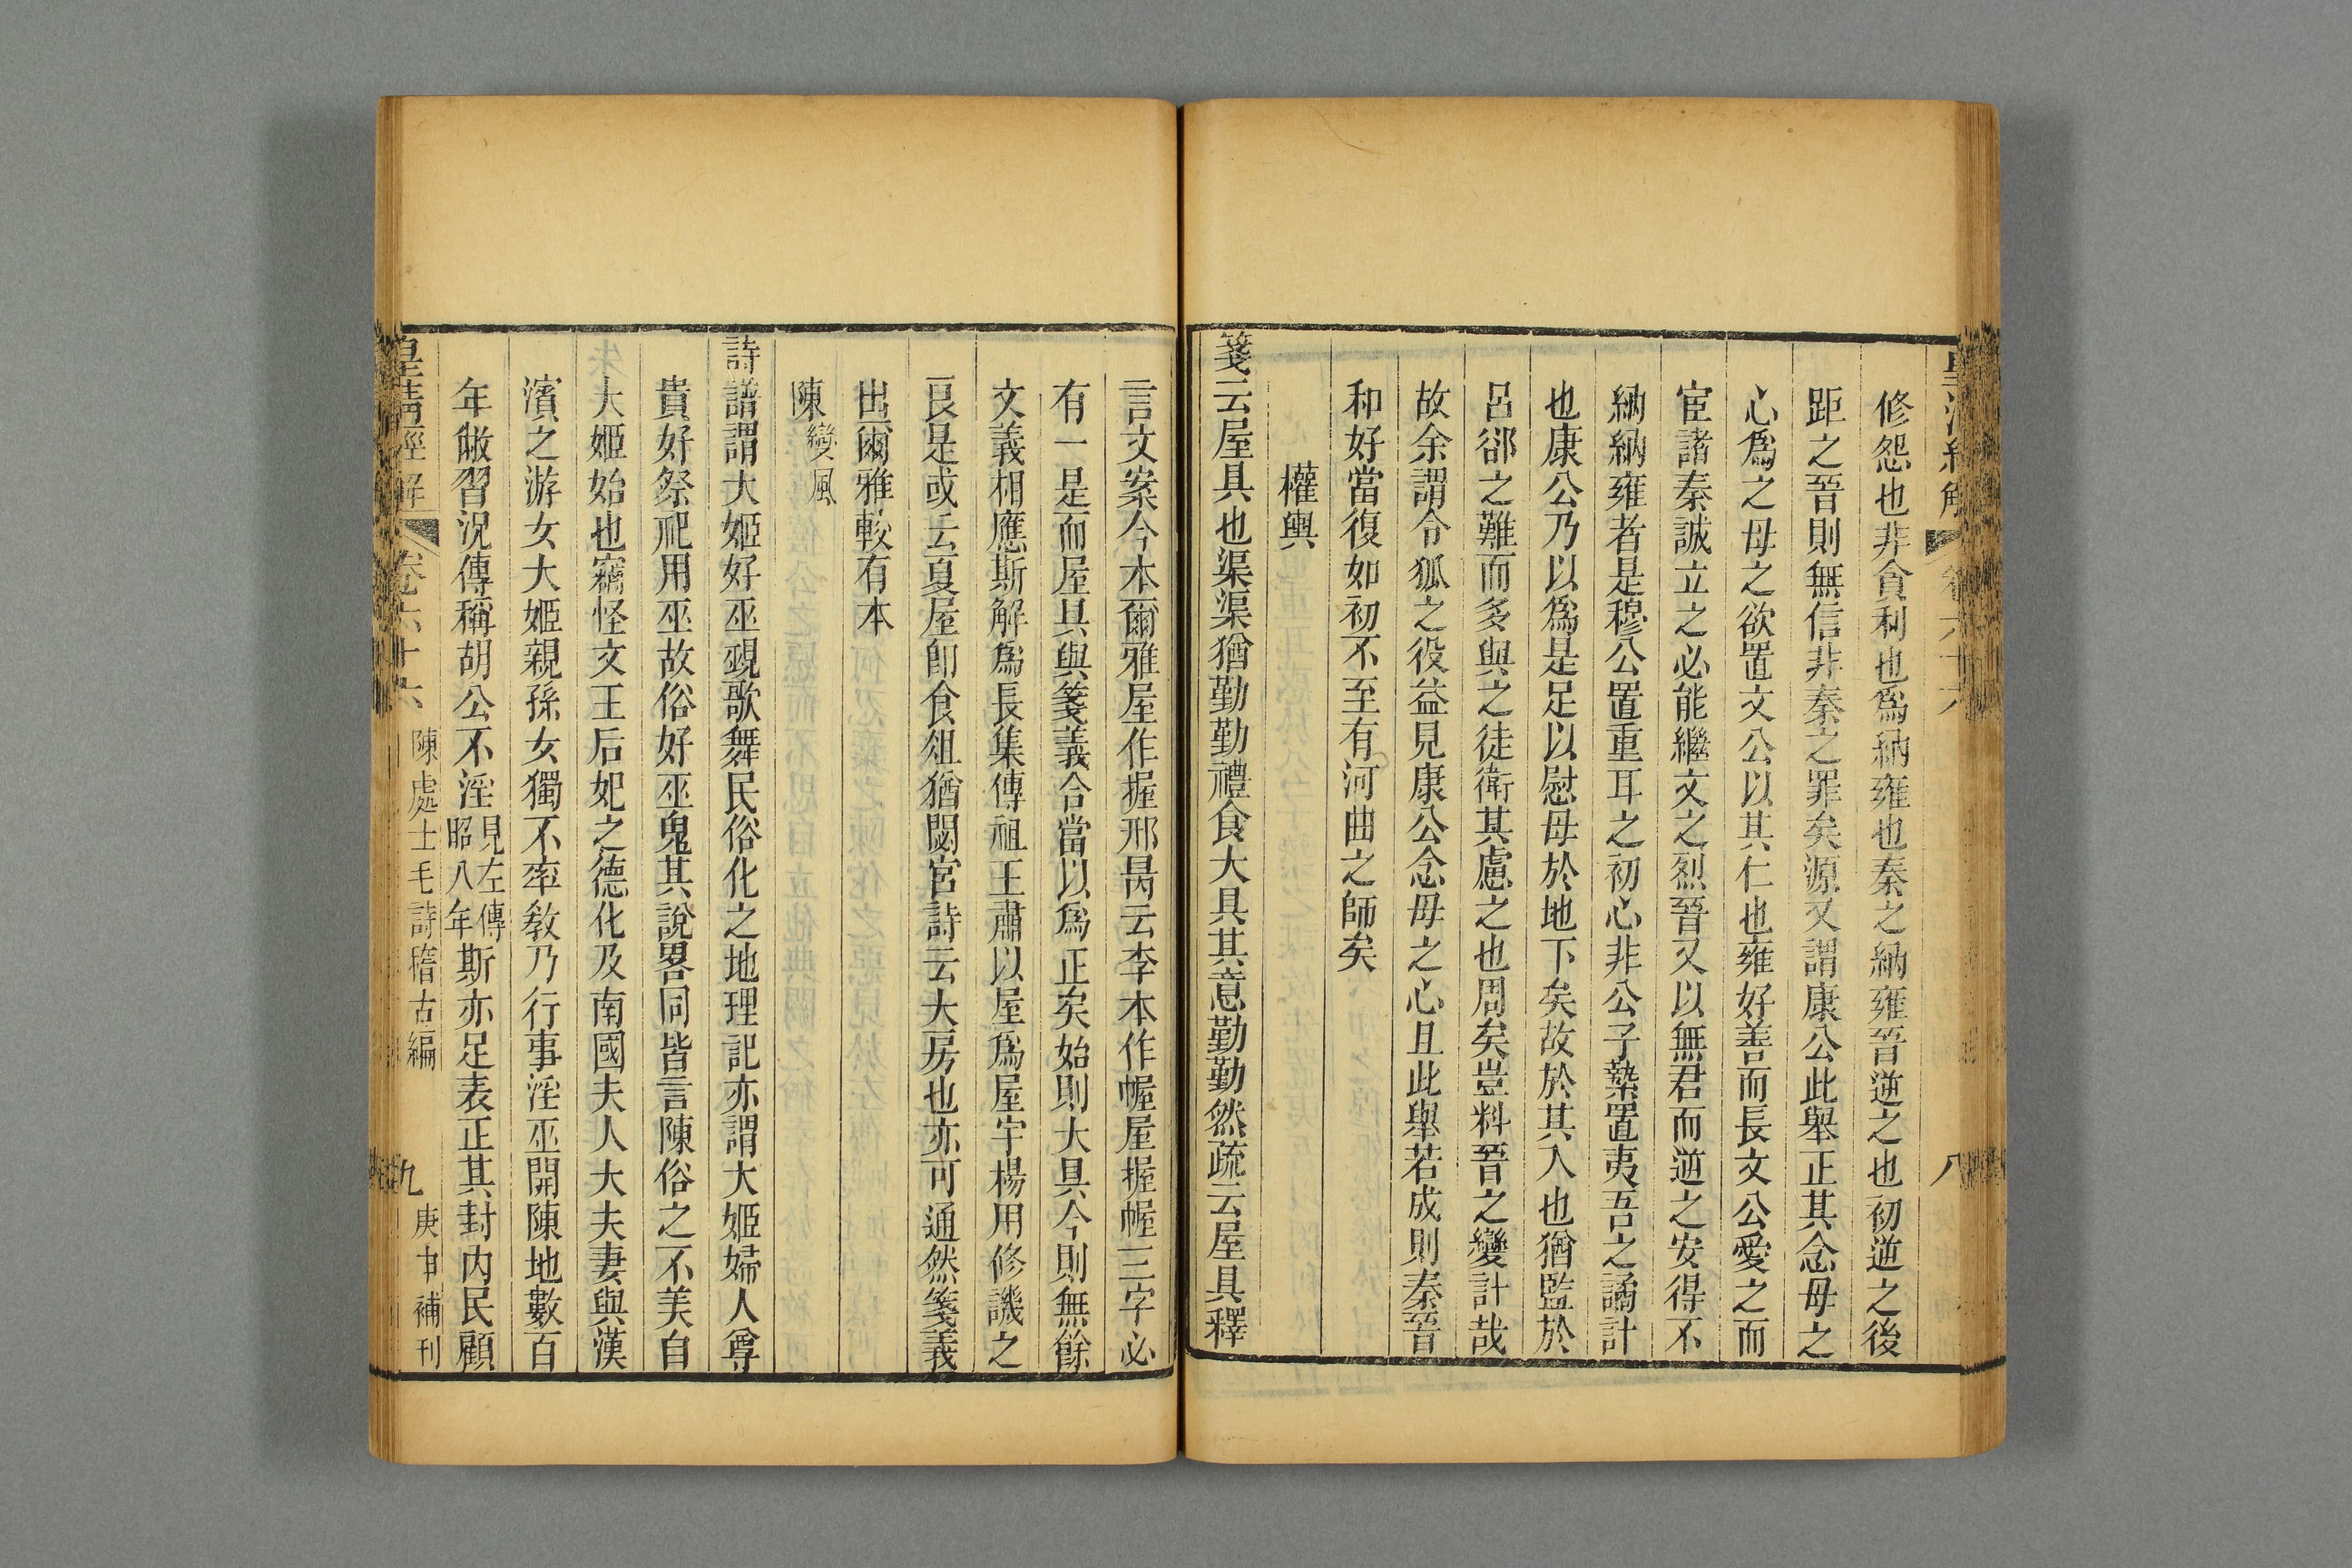 修怨也非貪利也爲納雍也秦之納雍晉逆之也初逆之後
距之晉則無信非秦之罪矣源又謂康公此舉正其念母之
心爲之母之欲置文公以其仁也雍好善而長文公愛之而
宦諸秦誠立之必能繼文之烈晉又以無君而逆之安得不
納納雍者是穆公置重耳之初心非公子縶置夷吾之譎計
也康公乃以爲是足以慰母於地下矣故於其入也猶監於
呂郤之難而多與之徒衛其慮之也周矣豈料晉之變計哉
故余謂令狐之役益見康公念母之心且此舉若成則秦晉
和好當復如初不至有河曲之師矣
權輿
箋云屋具也渠渠猶勤勤禮食大具其意勤勤然疏云屋具釋
言文案今本爾雅屋作握邢昺云李本作幄屋握幄三字必
有一是而屋具與箋義合當以爲正矣始則大具今則無餘
文義相應斯解爲長集傳祖王肅以屋爲屋宇楊用修譏之
艮是或云夏屋卽食俎猶閟宮詩云大房也亦可通然箋義
出爾雅較有本
陳變風
詩譜謂大姬好巫覡歌舞民俗化之地理記亦謂大姬婦人尊
貴好祭祀用巫故俗好巫鬼其說畧同皆言陳俗之不美自
大姬始也竊怪文王后妃之德化及南國夫人大夫妻與漢
濱之游女大姬親孫女獨不率敎乃行事淫巫開陳地數百
年敝習況傳稱胡公不淫見左傳昭八年斯亦足表正其封內民顧
皇淸經解 卷六十六 陳處士毛詩稽古編 九 庚申補刊